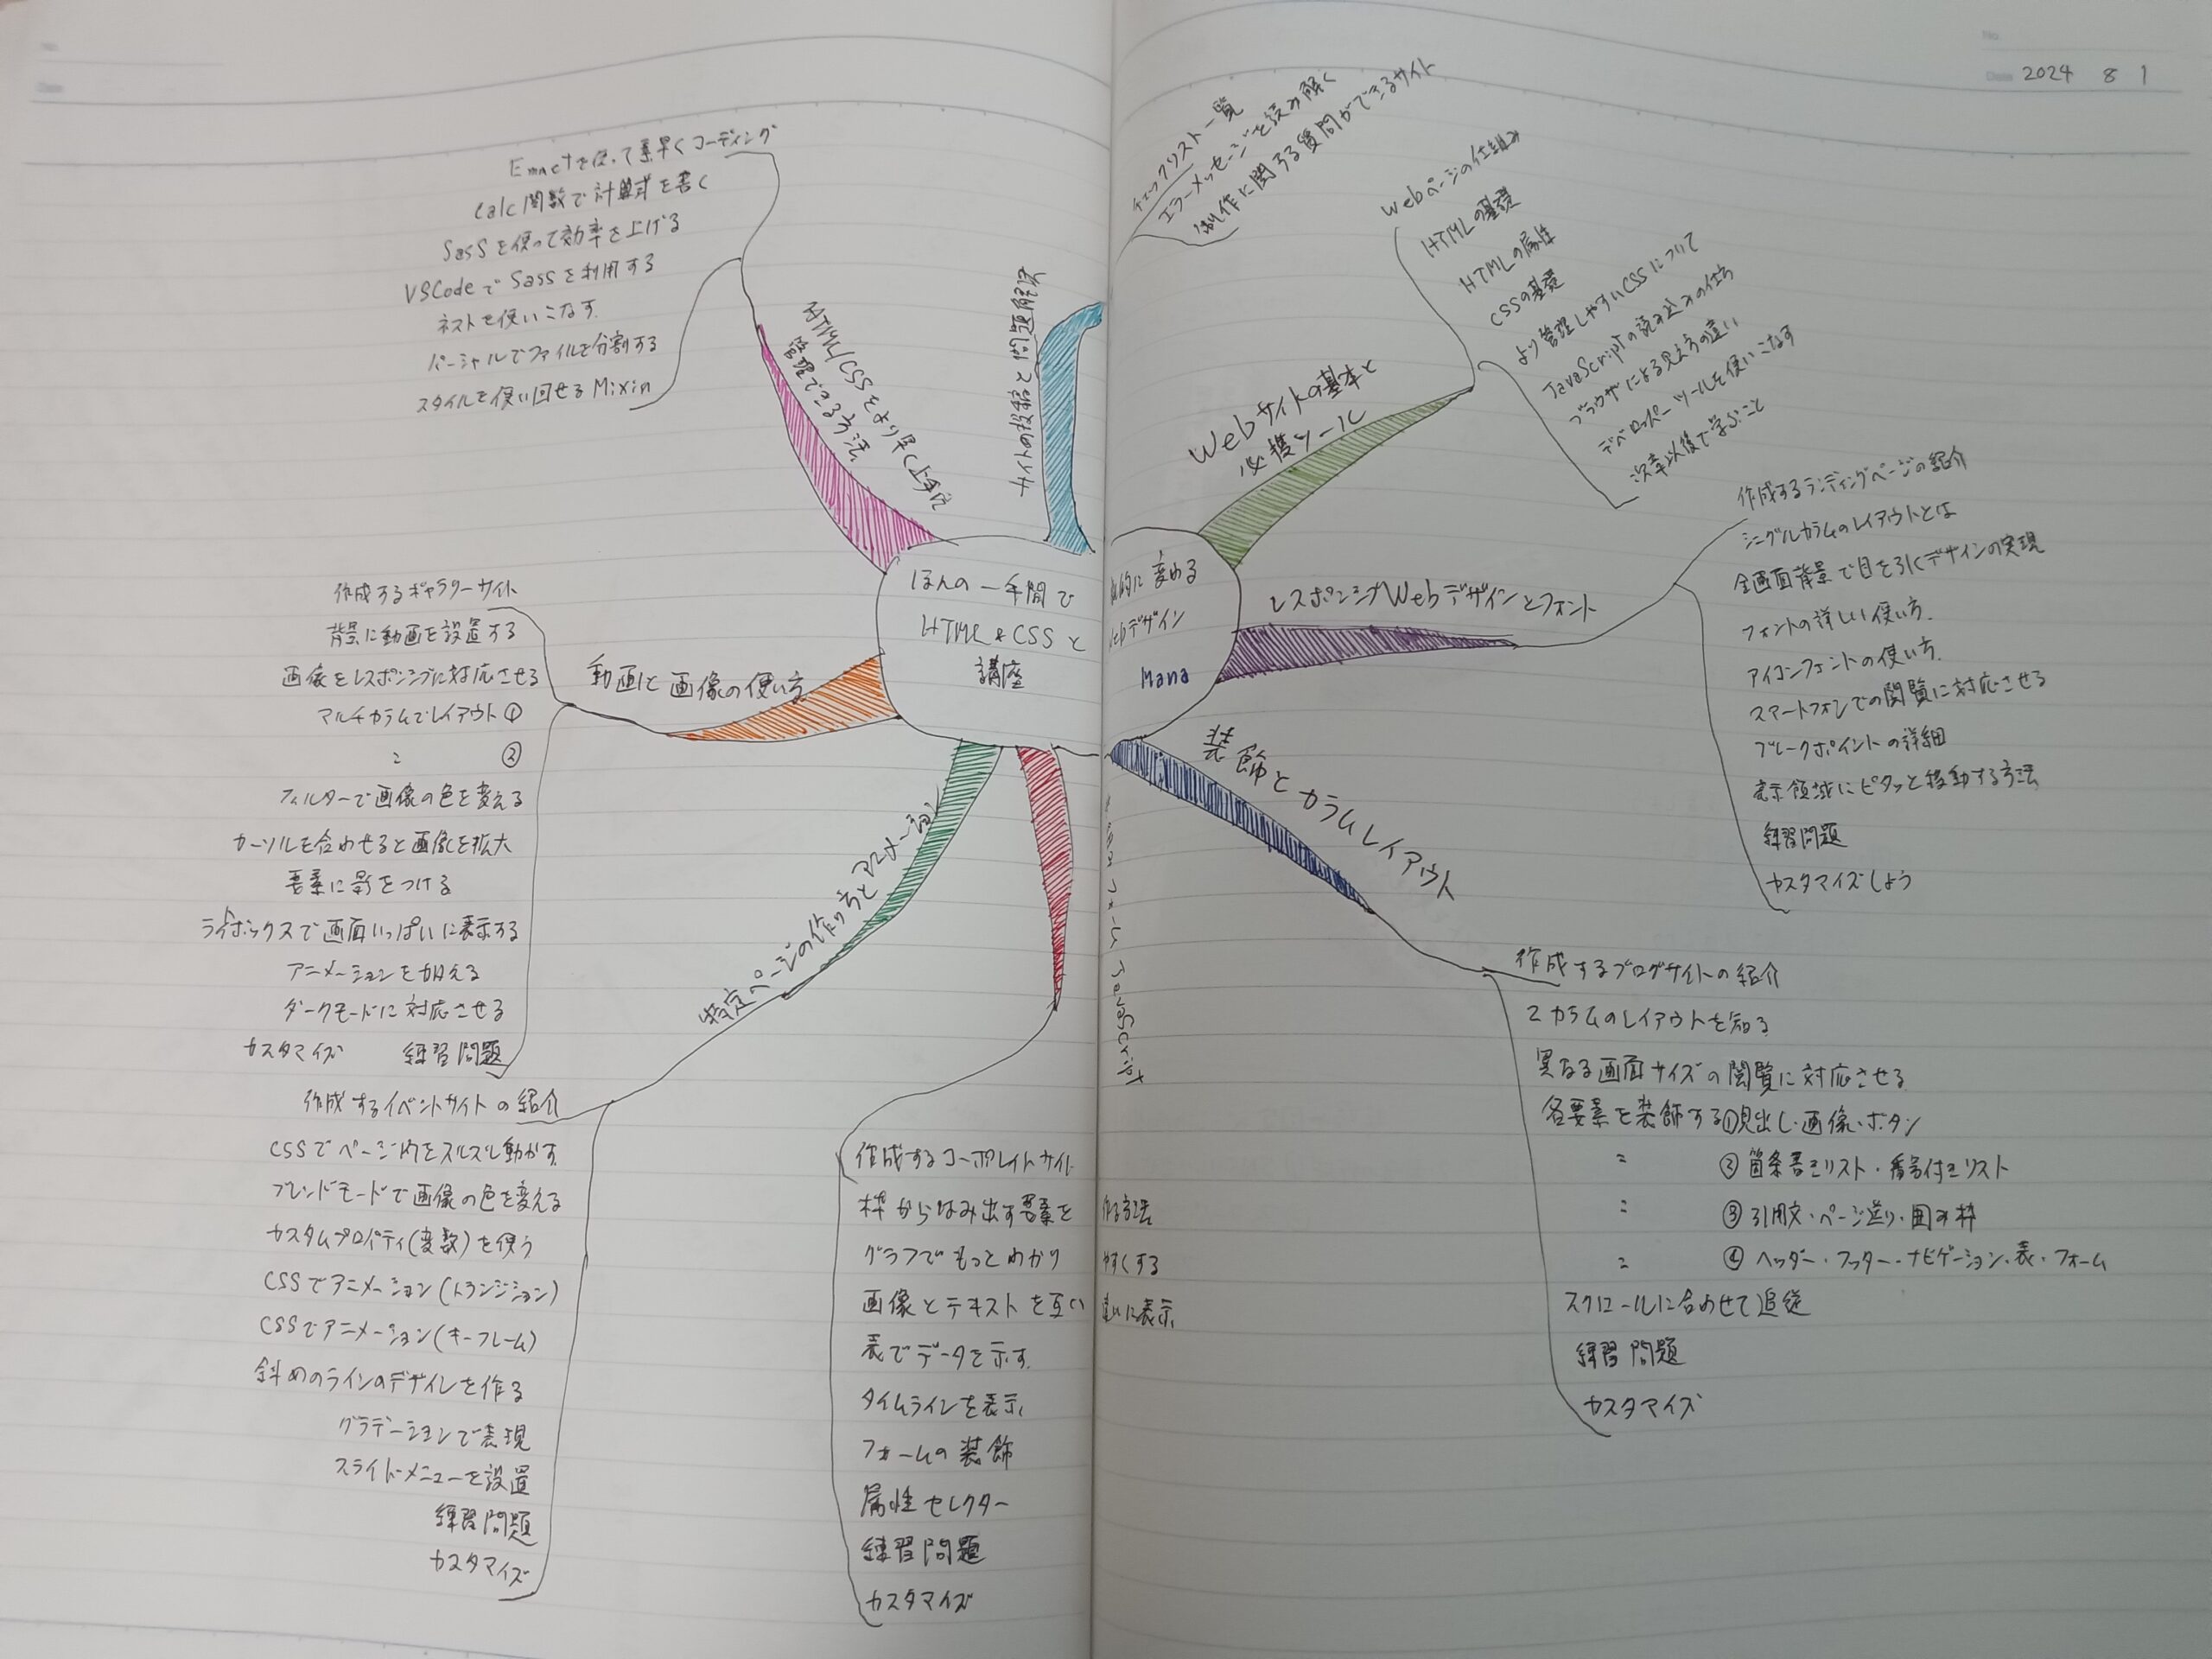 2024 8 1
ほんの一手間で 劇的に変わる
HTML & CSSと Webデザイン
講座 Mana
Webサイトの基本と
必携ツール
Webページの仕組み
HTMLの基礎
HTMLの属性
CSSの基礎
より管理しやすいCSSについて
JavaScriptの読み込みの仕方
ブラウザによる見え方の違い
デベロッパーツールを使いこなす
次章以後で学ぶこと
レスポンシブWebデザインとフォント
作成するランディングページの紹介
シングルカラムのレイアウトとは
全画面背景で目を引くデザインの実現
フォントの詳しい使い方
アイコンフォントの使い方
スマートフォンでの閲覧に対応させる
ブレークポイントの詳細
表示領域にピタッと移動する方法
練習問題
カスタマイズしよう
装飾とカラムレイアウト
作成するブログサイトの紹介
2カラムのレイアウトを知る
異なる画面サイズの閲覧に対応させる
各要素を装飾する①見出し・画像・ボタン
〃 ②箇条書きリスト・番号付きリスト
〃 ③引用文・ページ送り・囲み枠
〃 ④ヘッダー・フッター・ナビゲーション・表・フォーム
スクロールに合わせて追従
練習問題
カスタマイズ
フォーム JavaScript
作成するコーポレイトサイト
枠からはみ出す要素を 作る方法
グラフでもっとわかり やすくする
画像とテキストを互い 違いに表示
表でデータを示す
タイムラインを表示
フォームの装飾
属性セレクター
練習問題
カスタマイズ
特定ページの作り方とアニメーション
作成するイベントサイトの紹介
CSSでページ内をスルスル動かす
ブレンドモードで画像の色を変える
カスタムプロパティ(変数)を使う
CSSでアニメーション(トランジション)
CSSでアニメーション(キーフレーム)
斜めのラインのデザインを作る
グラデーションで表現
スライドメニューを設置
練習問題
カスタマイズ
動画と画像の使い方
作成するギャラリーサイト
背景に動画を設置する
画像をレスポンシブに対応させる
マルチカラムでレイアウト①
〃 ②
フィルターで画像の色を変える
カーソルを合わせると画像を拡大
要素に影をつける
ライトボックスで画面いっぱいに表示する
アニメーションを加える
ダークモードに対応させる
カスタマイズ 練習問題
HTML/CSSをより早く上手に
管理できる方法
Emmetを使って素早くコーディング
Calc関数で計算式を書く
SasSを使って効率を上げる
VSCodeでSassを利用する
ネストを使いこなす
パーシャルでファイルを分割する
スタイルを使い回せるMixin
サイトの投稿と問題解決
チェックリスト一覧
エラーメッセージを読み解く
制作に関する質問ができるサイト